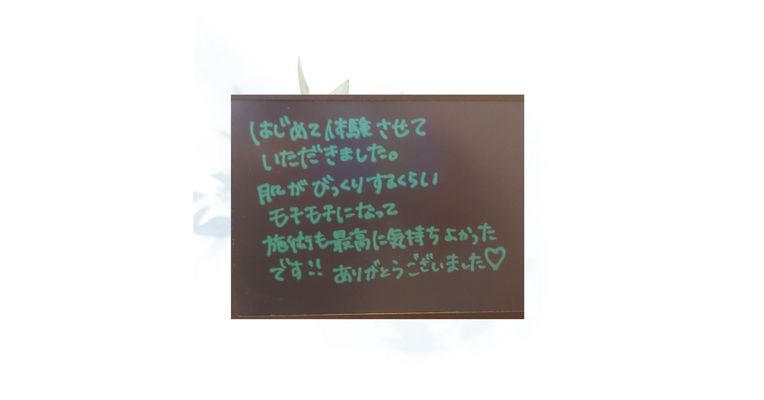 はじめて体験させて
いただきました。
肌がびっくりするくらい
モチモチになって
施術も最高に気持ちよかった
です!! ありがとうございました♡